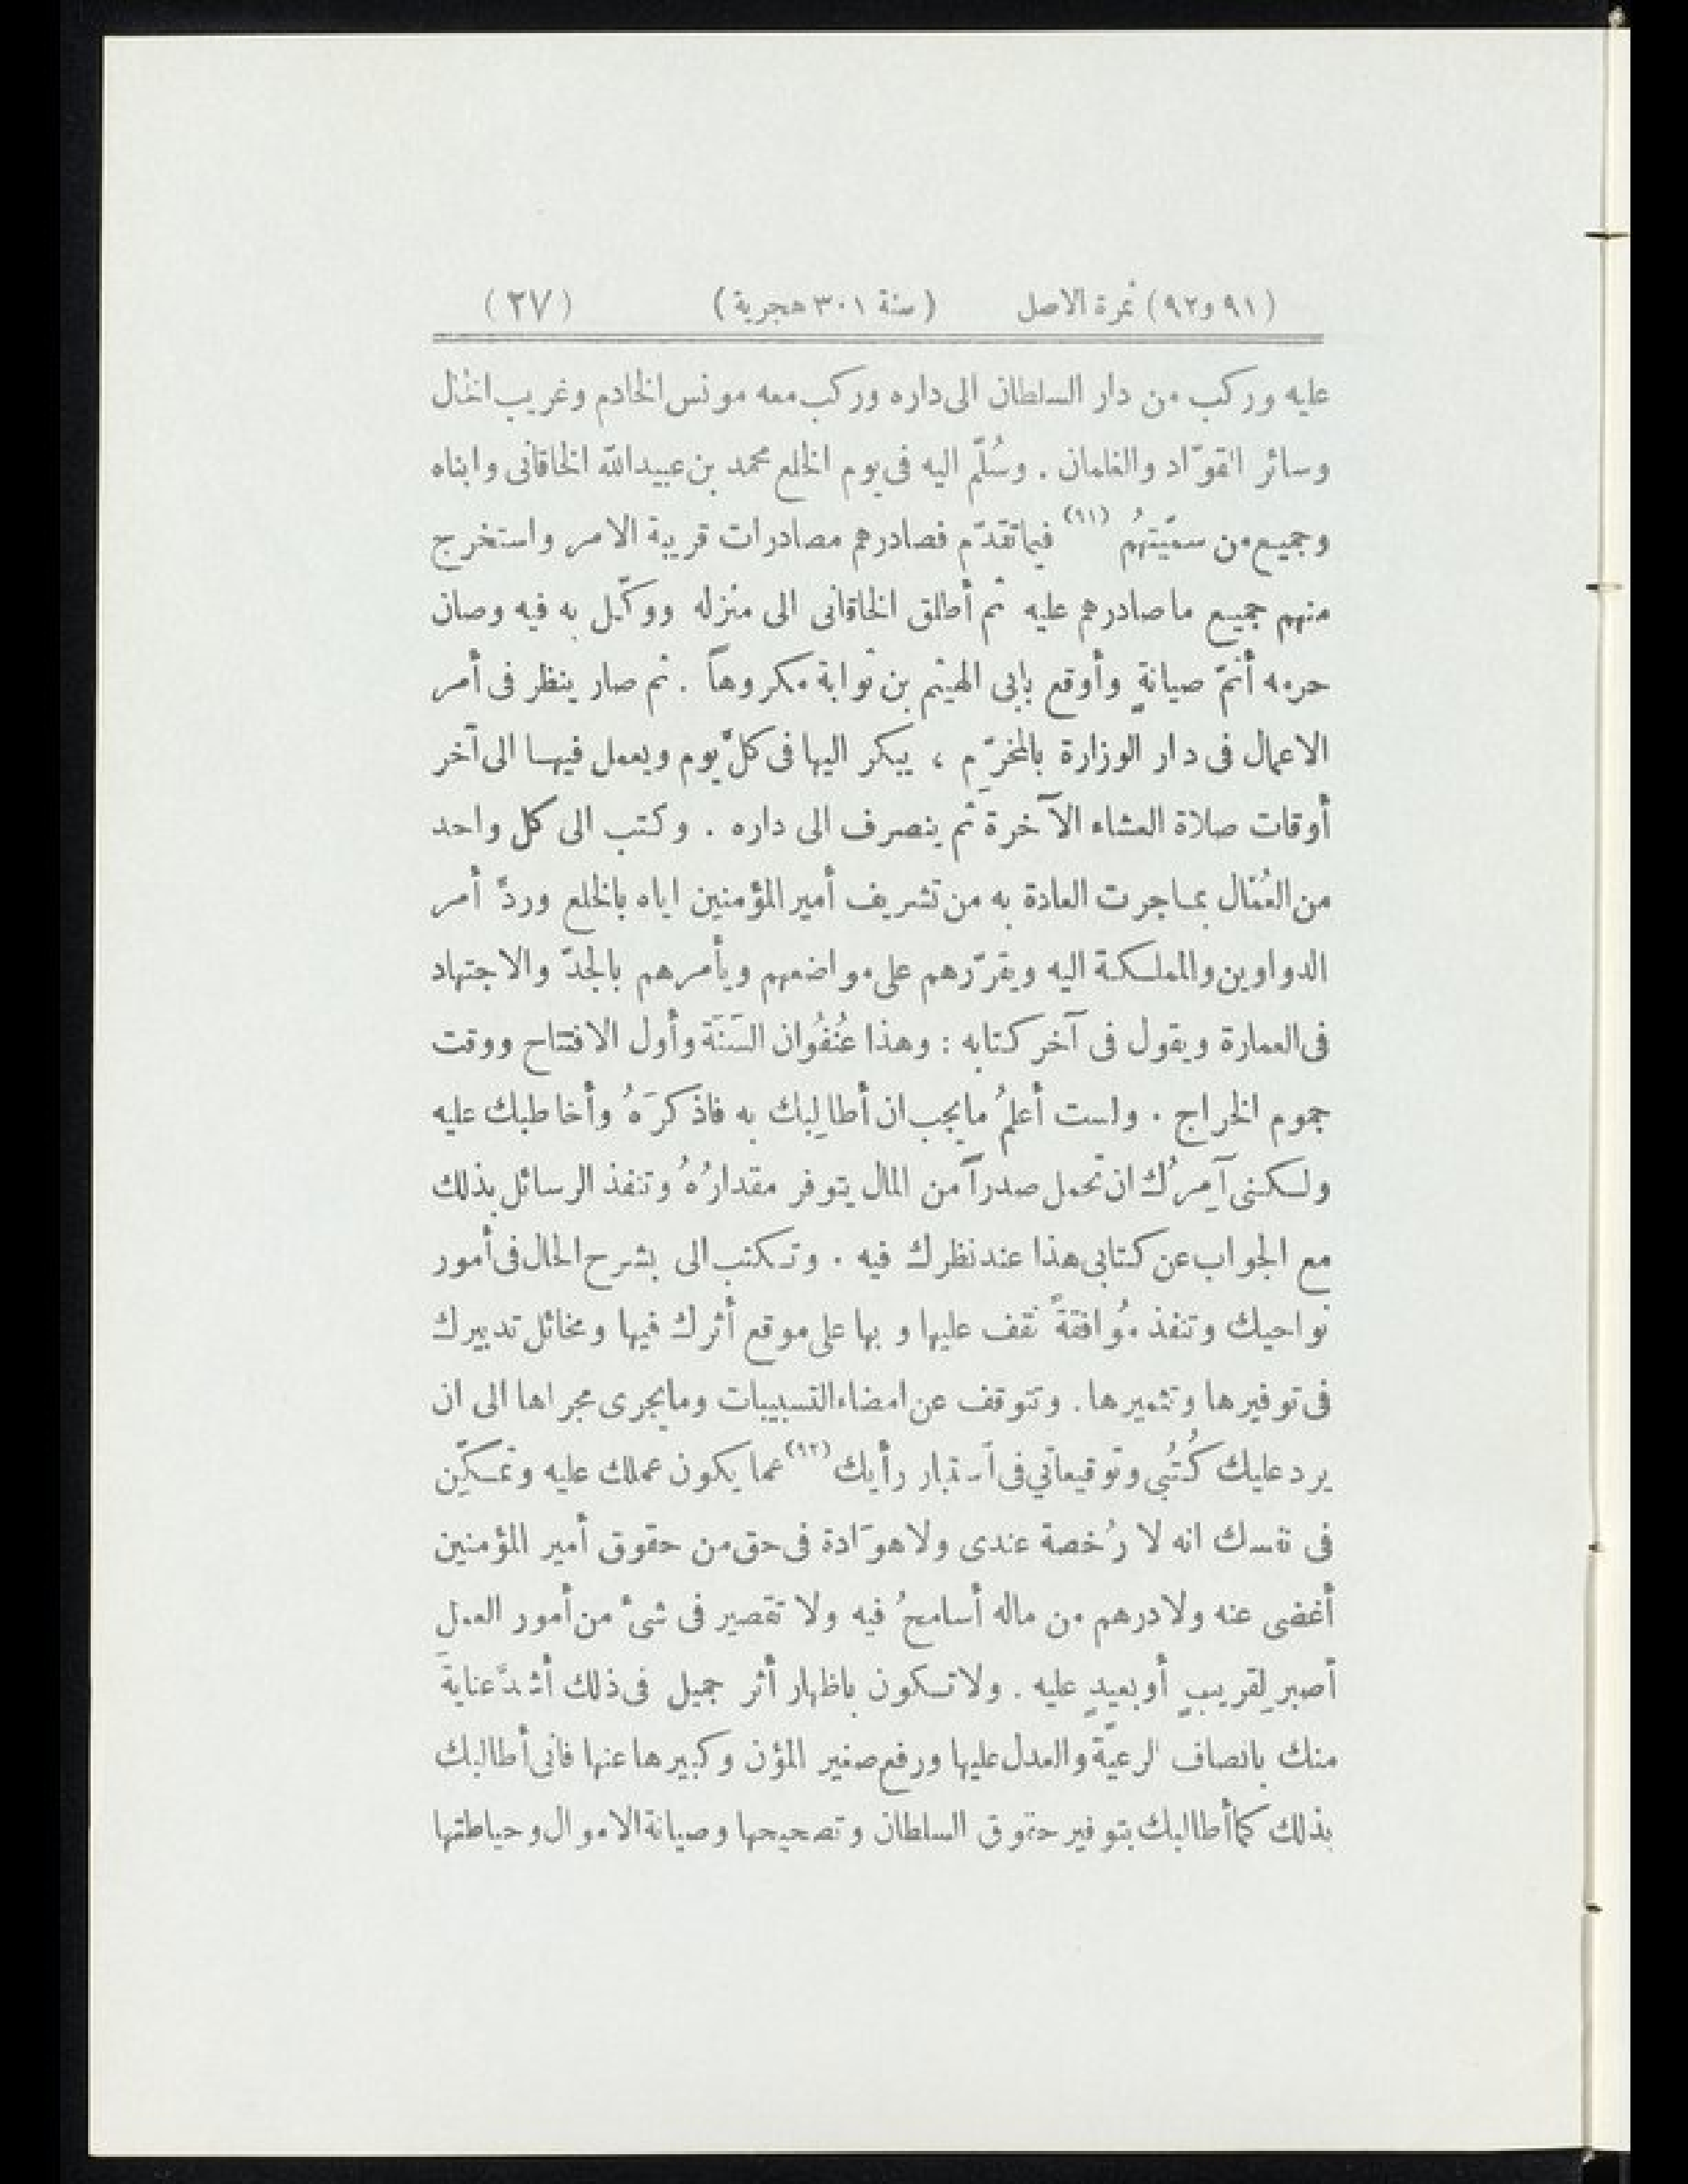 (٩١ و٩٢) نمرة الاصل (سنة ٣٠١ هجرية) (٢٧)
عليه وركب من دار السلطان الى داره وركب معه مونس الخادم وغريب الخال
وسائر القوّاد والغلمان . وسُلّم اليه فى يوم الخلع محمد بن عبيد الله الخاقانى وابناه
وجميع من سمّيتهُم (٩١) فيما تقدّم فصادرهم مصادرات قريبة الامر واستخرج
منهم جميع ما صادرهم عليه ثم أطلق الخاقانى الى منزله ووكّل به فيه وصان
حرمه أتمّ صيانةٍ وأوقع بابى الهيثم بن ثوابة مكروهاً . ثم صار ينظر فى أمر
الاعمال فى دار الوزارة بالمخرّم ، يبكر اليها فى كلّ يوم ويعمل فيها الى آخر
أوقات صلاة العشاء الآخرة ثم ينصرف الى داره . وكتب الى كل واحد
من العُمّال بما جرت العادة به من تشريف أمير المؤمنين اياه بالخلع وردّ أمر
الدواوين والمملكة اليه ويقرّرهم على مواضعهم ويأمرهم بالجدّ والاجتهاد
فى العمارة ويقول فى آخر كتابه : وهذا عُنفُوان السَنَة وأول الافتتاح ووقت
جموم الخراج . ولست أعلمُ ما يجب ان أطالِبك به فاذكرَهُ وأخاطبك عليه
ولكنى آمِرُك ان تحمل صدراً من المال يتوفر مقدارُهُ وتنفذ الرسائل بذلك
مع الجواب عن كتابى هذا عند نظرك فيه . وتكتب الى بشرح الحال فى أمور
نواحيك وتنفذ مُوافقةً نقف عليها و بها على موقع أثرك فيها ومخائل تدبيرك
فى توفيرها وتثميرها . وتتوقف عن امضاء التسبيبات وما يجرى مجراها الى ان
يرد عليك كُتُبي وتوقيعاتي فى رأيك (٩٢) عما يكون عملك عليه وتمكّين
فى نفسك انه لا رُخصة عندى ولا هوَادة فى حق من حقوق أمير المؤمنين
أغضى عنه ولا درهم من ماله أسامحُ فيه ولا تقصير فى شىء من أمور العمل
أصبر لِقريبٍ أو بعيدٍ عليه . ولا تكون باظهار أثر جميل فى ذلك أشدَّ عناية
منك بانصاف الرعيّة والعدل عليها ورفع صغير المؤن وكبيرها عنها فانى أطالبك
بذلك كما أطالبك بتوفير حقوق السلطان وتصحيحها وصيانة الاموال وحياطتها